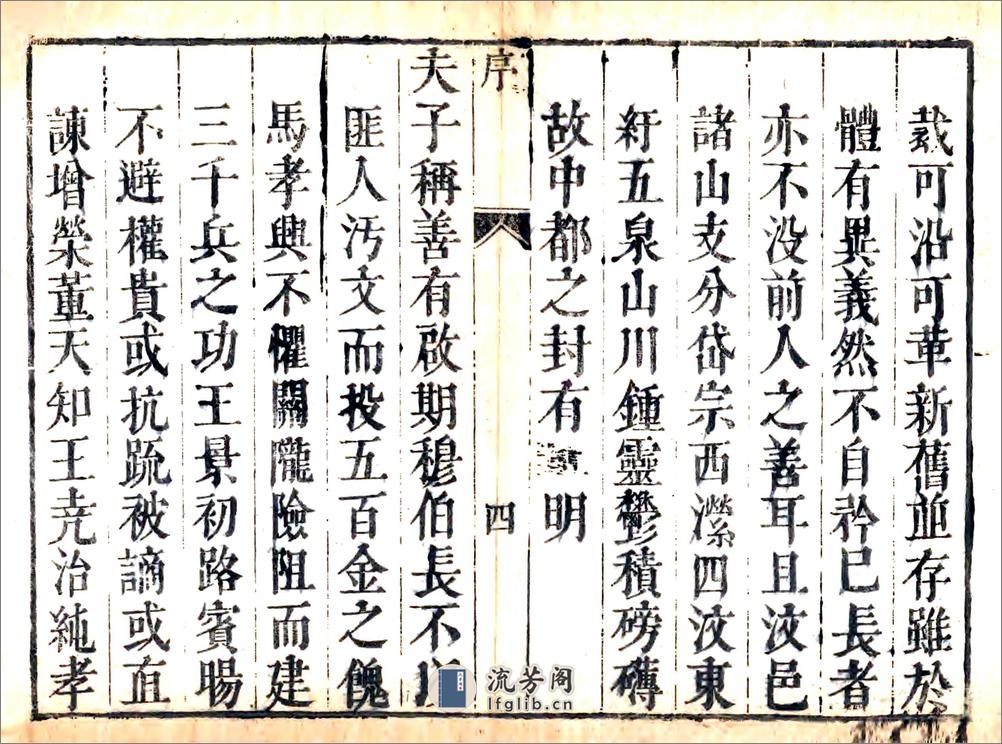 裁可沿可革新舊並存雖於
體有異義然不自矜已長者
亦不没前人之善耳且汶邑
諸山支分岱宗西瀠四汶東
紆五泉山川鍾靈鬱積磅礡
故中都之封有明
序
四
夫子稱善有啟期穆伯長不以
匪人汚文而投五百金之餽
馬孝興不懼關隴險阻而建
三千兵之功王景初路賓暘
不避權貴或抗疏被謫或直
諫增榮董天知王尭治純孝
流芳阁
lfglib.cn